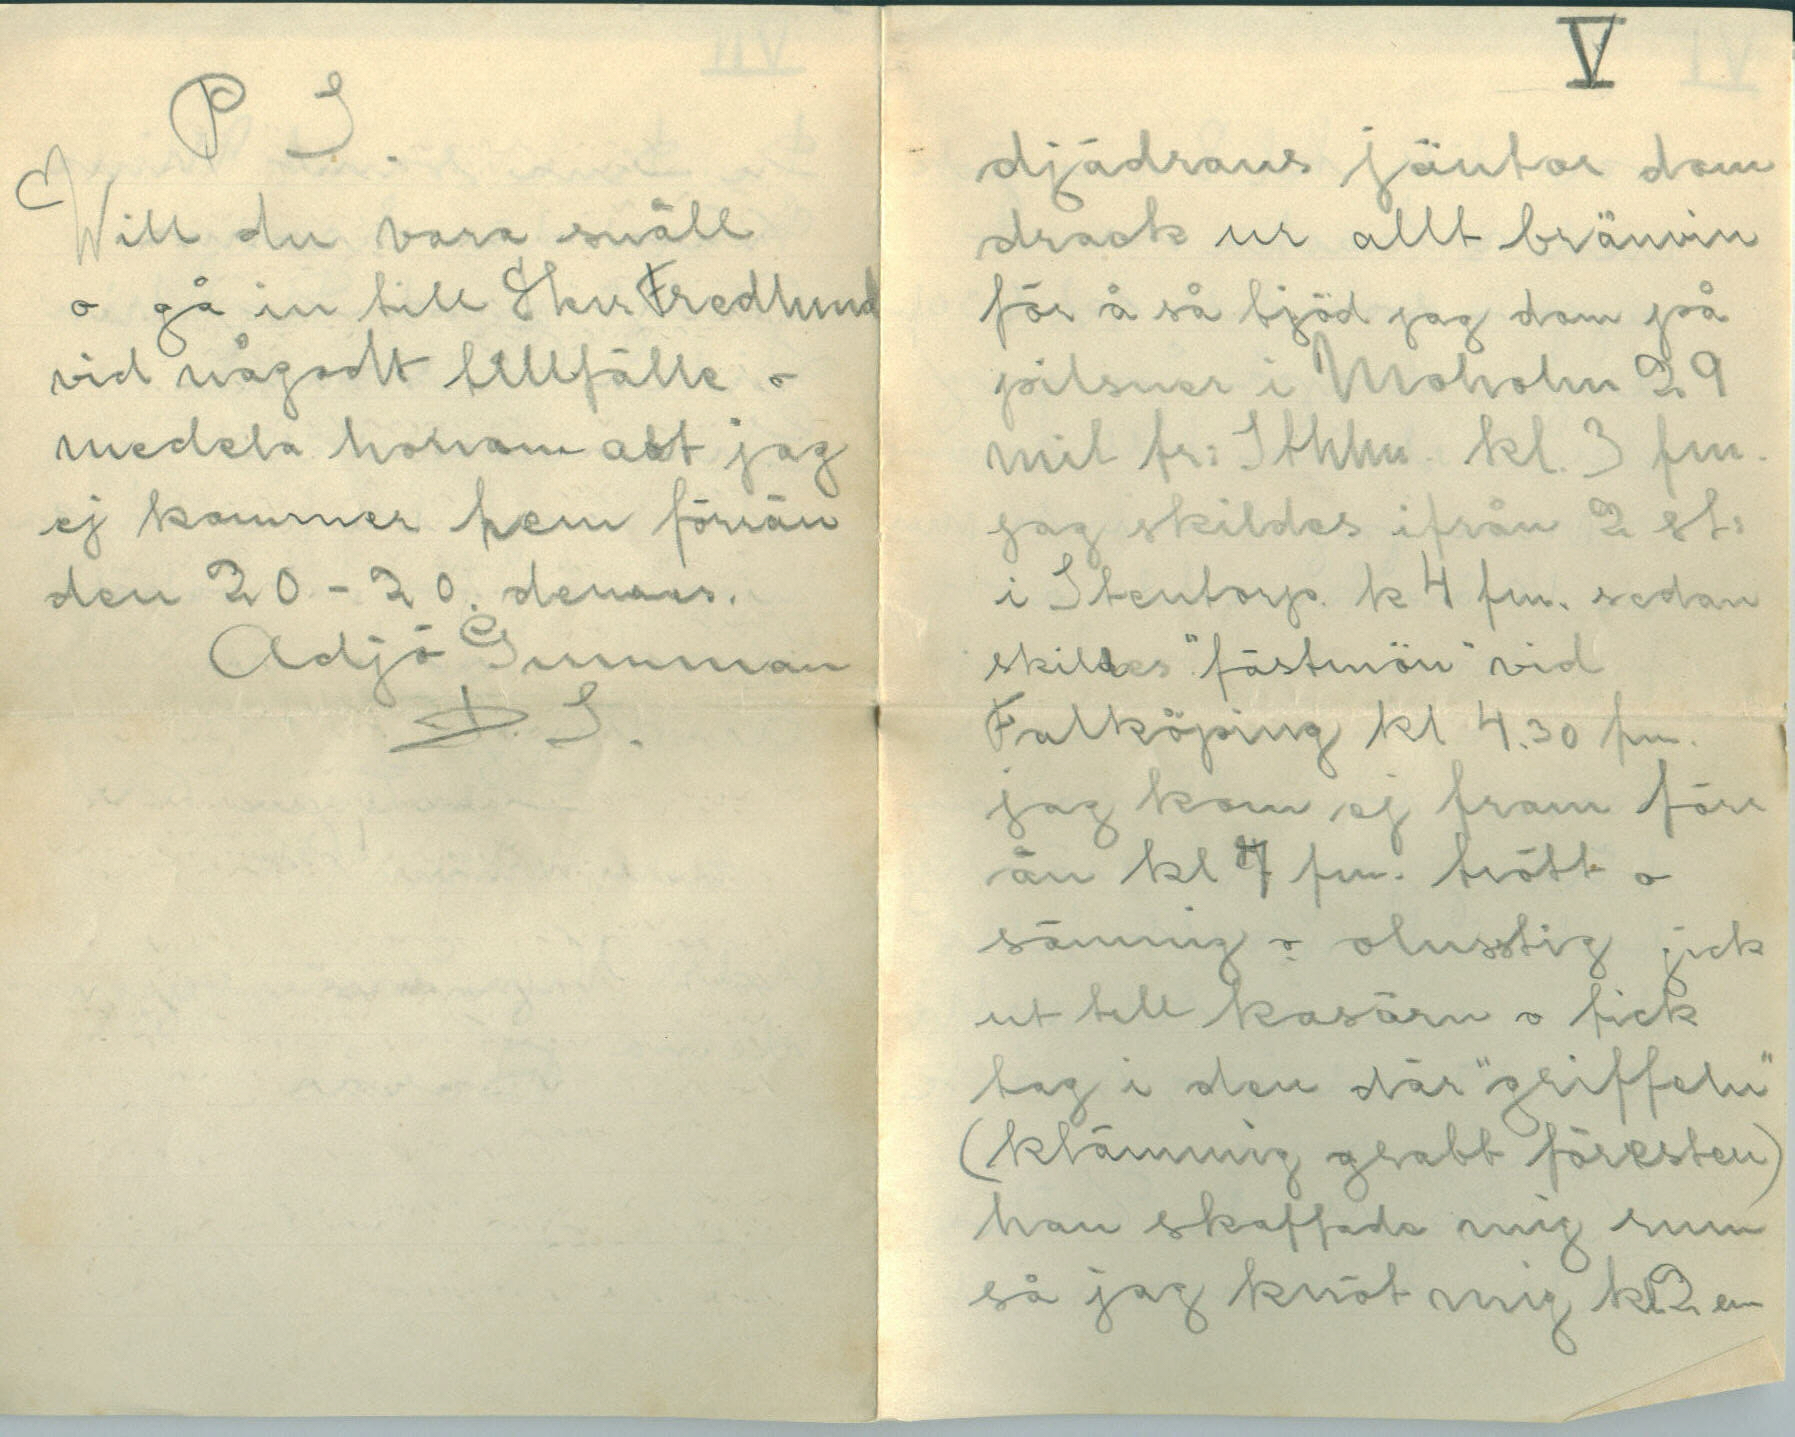 P S.
Will du vara snäll
o gå in till Skr Fredlund
vid någodt tillfälle o
medela honom att jag
ej kommer hem förrän
den 20 - 20. dennes.
Adjö Gumman
D. S.
V
djädrans jäntor dom
drack ur allt bränvin
för å så bjöd jag dom på
pilsner i Moholm 29
mil fr: Sthlm. kl. 3 fm.
jag skildes ifrån 2 st:
i Stentorp. k 4 fm. sedan
skildes "fästmön" vid
Falköping kl 4.30 fm.
jag kom ej fram förr
än kl 7 fm. trött o
sömnig o olustig jick
ut till kasärn o fick
tag i den där "griffeln"
(klämmig grabbföresten)
han skaffade mig rum
så jag knöt mig kl 2 em